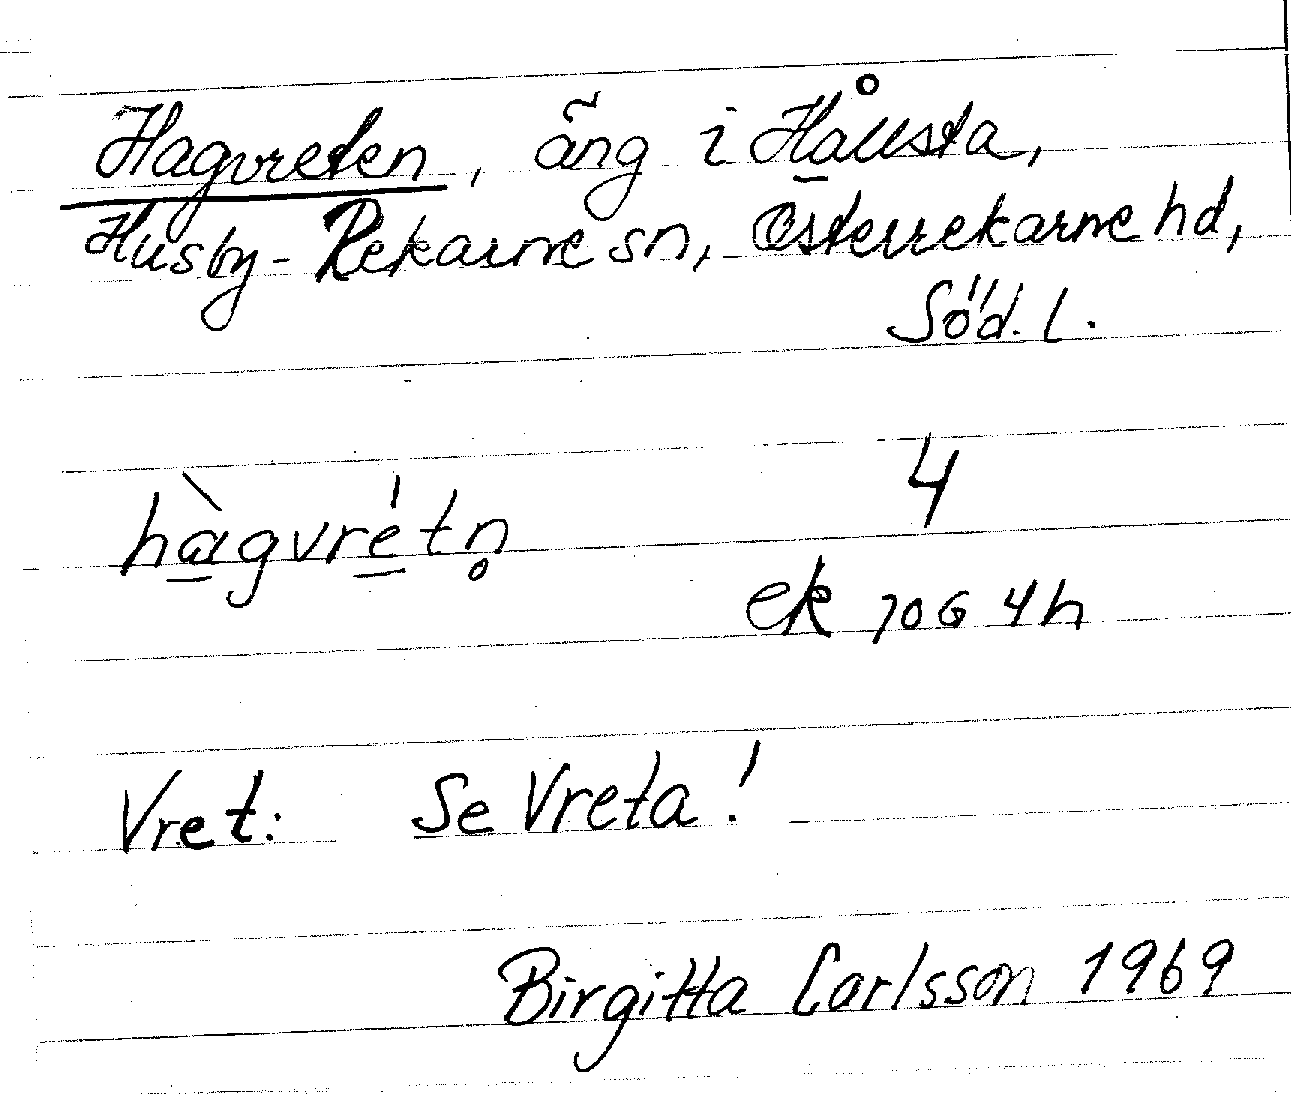 Hagvreten, äng i Hållsta,
Husby-Rekarne sn, Österrekarne hd,
Söd. l.
hàgvrétn̥
4
ek 10G 4h
Vret: Se Vreta!
Birgitta Carlsson 1969